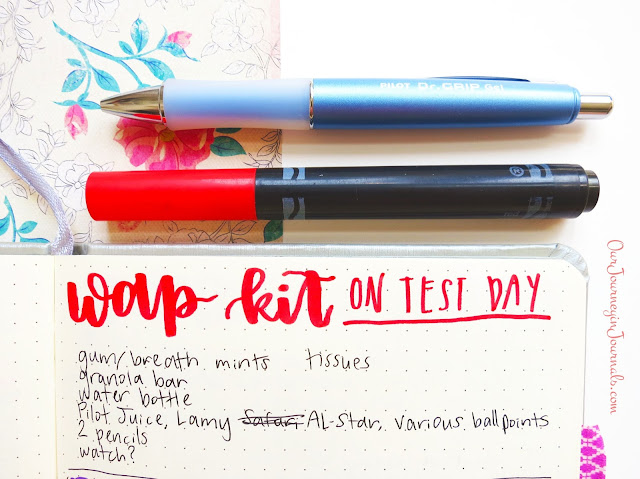 PILOT Dr. GRIP Gel
wap kit ON TEST DAY
gum/breath mints tissues
granola bar
water bottle
Pilot Juice, Lamy Safari AL-Star, various ballpoints
2 pencils
watch?
OurJourneyinJournals.com